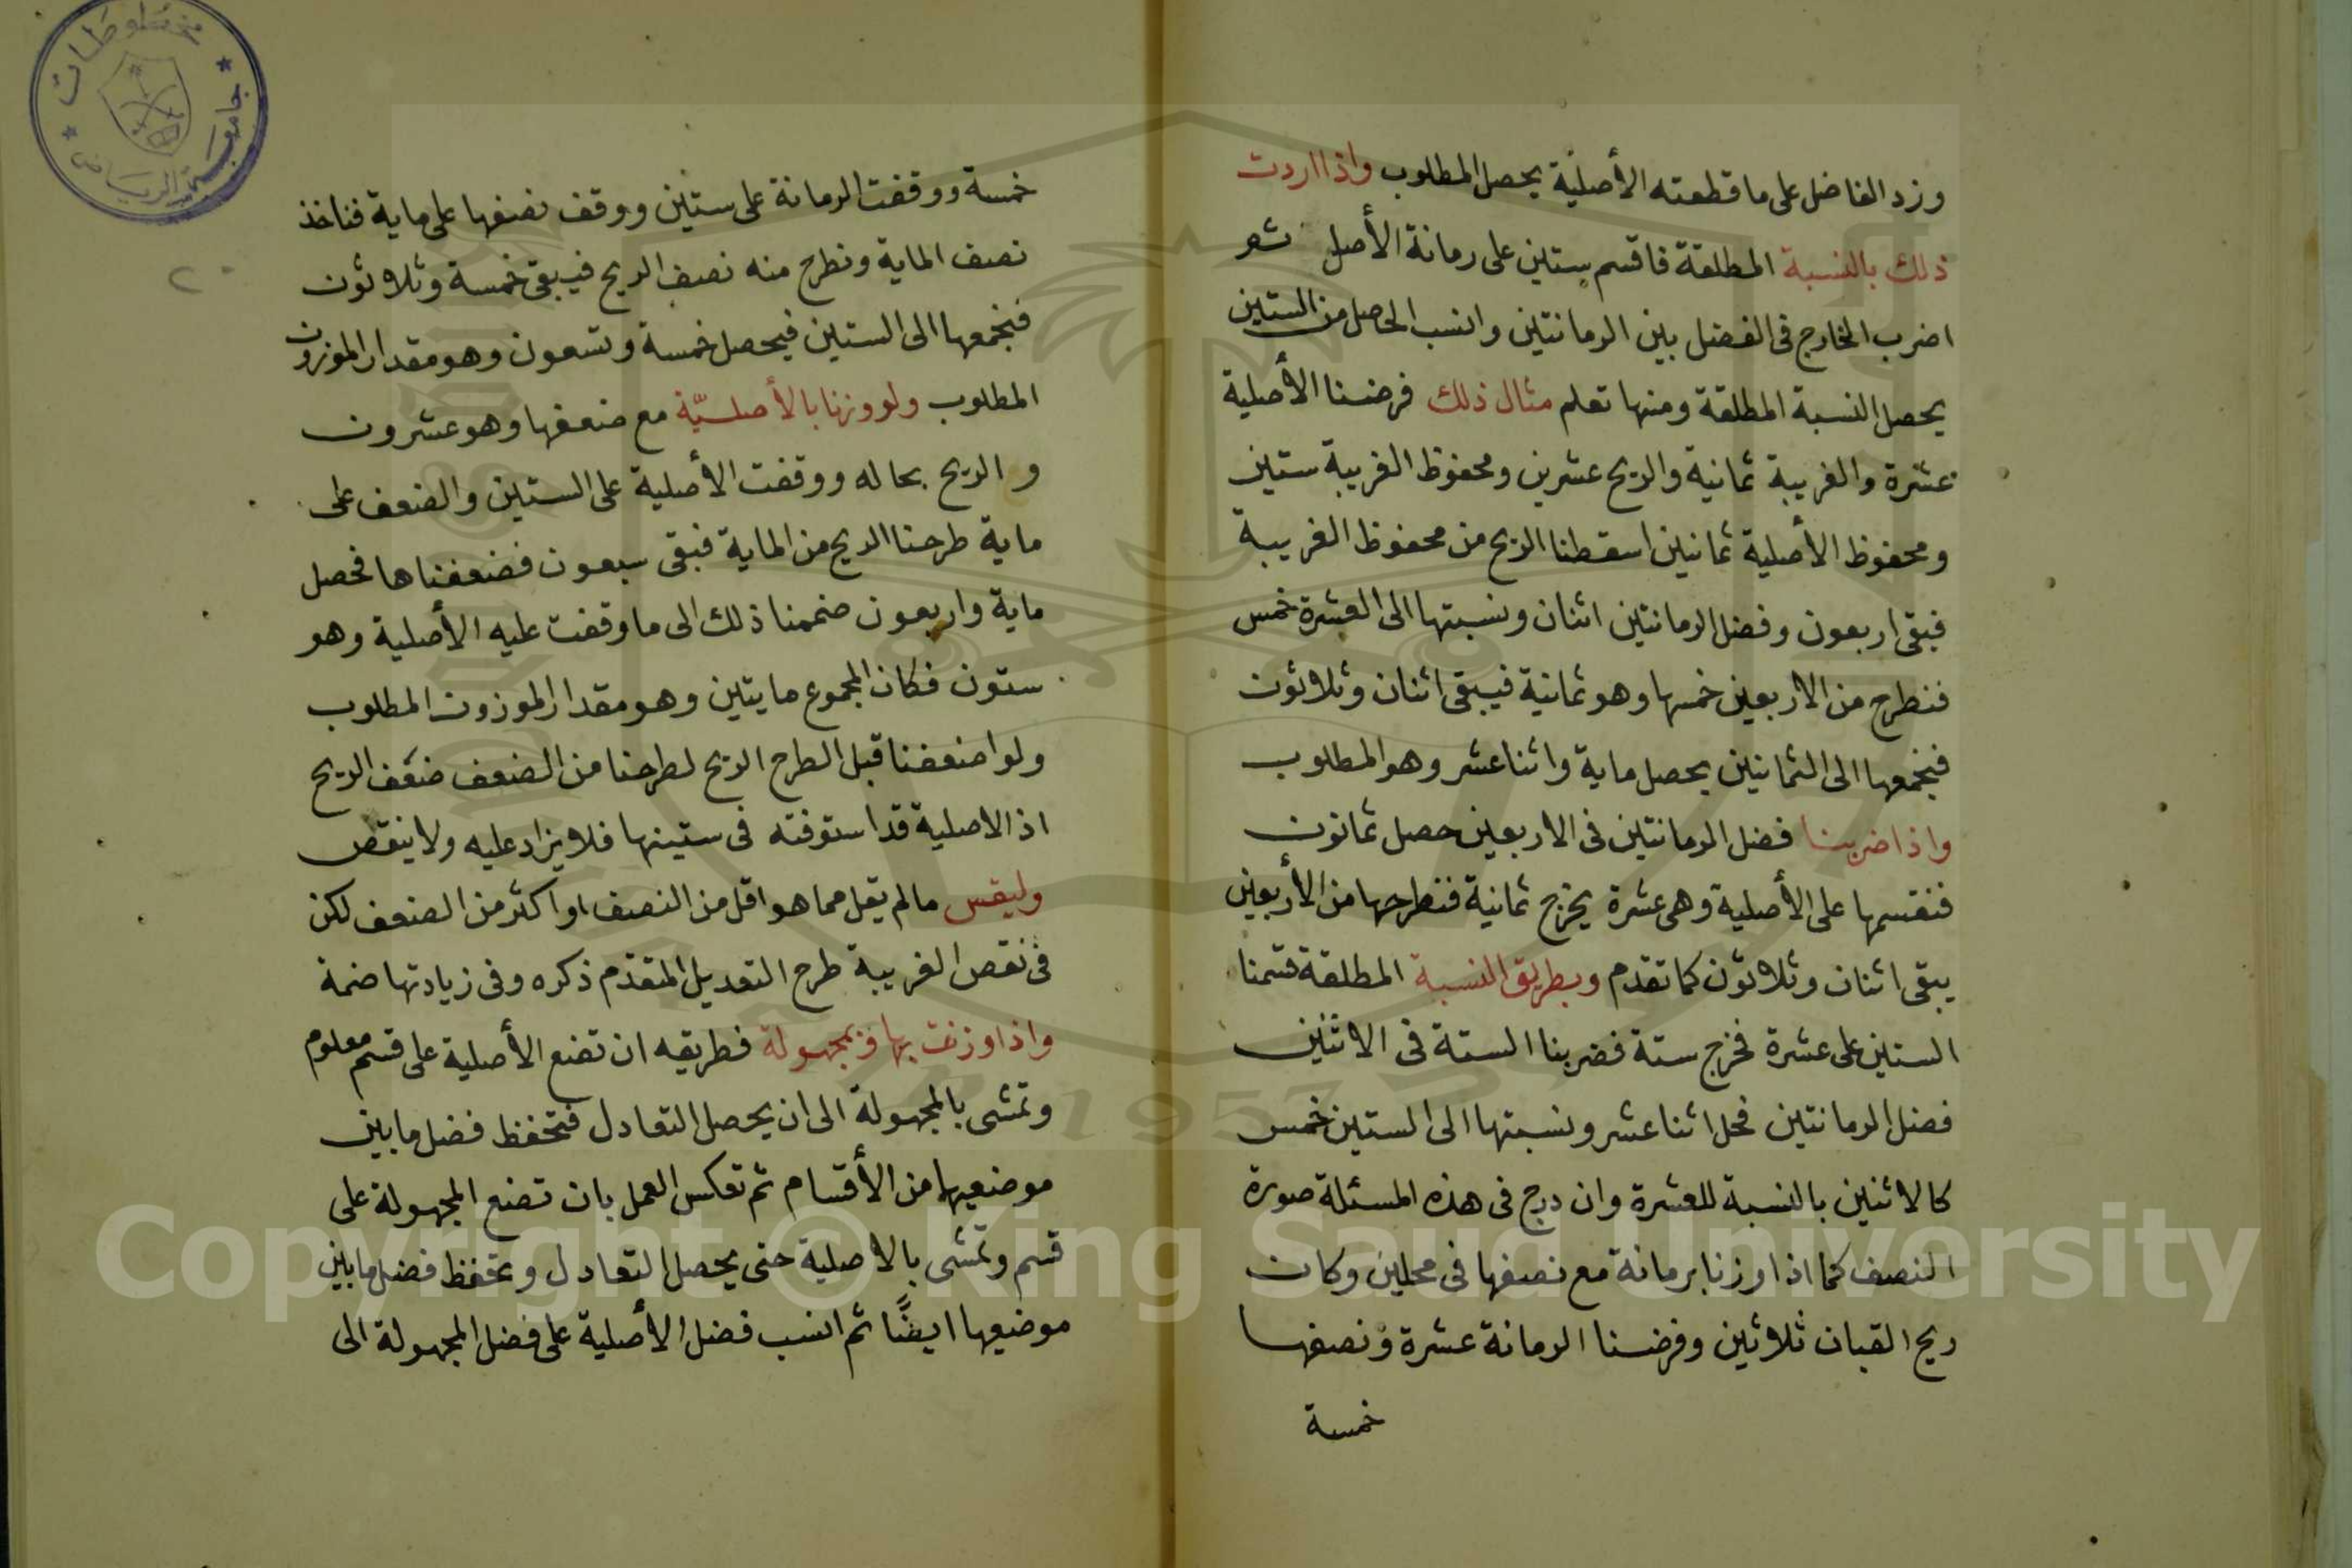 وزد الفاضل على ما قطعته الأصلية يحصل المطلوب واذا اردت
ذلك بالنسبة المطلقة فاقسم ستين على رمانة الأصل ثم
اضرب الخارج فى الفضل بين الرمانتين وانسب الحاصل من الستين
يحصل النسبة المطلقة ومنها تعلم مثال ذلك فرضنا الأصلية
عشرة والغريبة ثمانية والريح عشرين ومحفوظ الغريبة ستين
ومحفوظ الأصلية ثمانين اسقطنا الريح من محفوظ الغريبة
فبقى اربعون وفضل الرمانتين اثنان ونسبتها الى العشرة خمس
فنطرح من الاربعين خمسها وهو ثمانية فيبقى اثنان وثلاثون
فنجمعها الى الثمانين يحصل ماية واثنا عشر وهو المطلوب
واذا ضربنا فضل الرمانتين فى الاربعين حصل ثمانون
فنقسمها على الأصلية وهى عشرة يخرج ثمانية فنطرحها من الأربعين
يبقى اثنان وثلاثون كما تقدم وبطريق النسبة المطلقة قسمنا
الستين على عشرة فخرج ستة فضربنا الستة فى الاثنين
فضل الرمانتين فحل اثنا عشر ونسبتها الى الستين خمس
كالاثنين بالنسبة للعشرة واندرج فى هذه المسئلة صورة
النصف كما اذا وزنا برمانة مع نصفها فى محلين وكان
ريح القبان ثلاثين وفرضنا الرمانة عشرة ونصفها
خمسة
خمسة ووقفت الرمانة على ستين ووقف نصفها على ماية فناخذ
نصف الماية ونطرح منه نصف الريح فيبقى خمسة وثلاثون
فنجمعها الى الستين فيحصل خمسة وتسعون وهو مقدار الموزون
المطلوب ولو وزنا بالأصليّة مع ضعفها وهو عشرون
والريح بحاله ووقفت الأصلية على الستين والضعف على
ماية طرحنا الريح من الماية فبقى سبعون فضعفناها فحصل
ماية واربعون ضممنا ذلك الى ما وقفت عليه الأصلية وهو
ستون فكان المجموع مايتين وهو مقدار الموزون المطلوب
ولو اضعفنا قبل الطرح الريح لطرحنا من الضعف ضعف الريح
اذ الاصلية قد استوفته فى ستينها فلا يزاد عليه ولا ينقص
وليقس مالم يقل مما هو اقل من النصف او اكثر من الضعف لكن
فى نقص الغريبة طرح التعديل المتقدم ذكره وفى زيادتها ضمه
واذا وزنت بها وبمجهولة فطريقه ان تضع الأصلية على قسم معلوم
وتمشى بالمجهولة الى ان يحصل التعادل فتحفظ فضل ما بين
موضعيها من الأقسام ثم تعكس العمل بان تضع المجهولة على
قسم وتمشى بالاصلية حتى يحصل التعادل وتحفظ فضل ما بين
موضعيها ايضًا ثم انسب فضل الأصلية على فضل المجهولة الى
مخطوطات
جامعة الرياض
Copyright © King Saud University
1957